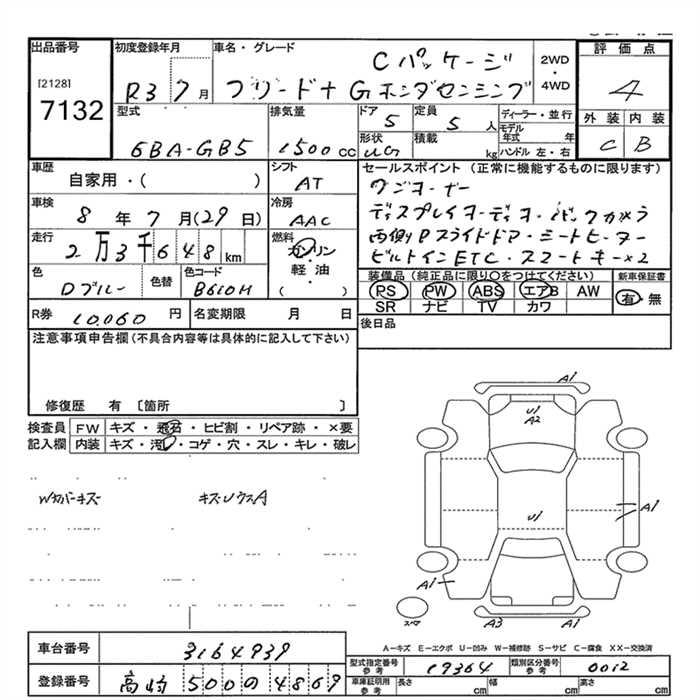 出品番号
[2128]
7132
初度登録年月
R3 7月
車名・グレード
Cパッケージ
フリード+ Gホンダセンシング
2WD
・
4WD
評価点
4
外装 内装
C B
型式
6BA-GB5
排気量
1500cc
ドア
5
定員
5 人
形状
UG
積載
kg
ディーラー・並行
モデル年式 年
ハンドル 左・右
車歴
自家用・( )
シフト
AT
車検
8年7月(29日)
冷房
AAC
走行
2万3千648km
燃料
ガソリン
・
軽油
( )
色
Dブルー
色替
色コード
B610M
R券
10.060円
名変期限 月 日
セールスポイント(正常に機能するものに限ります)
ワンオーナー
ディスプレイオーディオ・バックカメラ
両側Pスライドドア・シートヒーター
ビルトインETC・スマートキー×2
装備品(純正品に限り〇をつけてください)
PS PW ABS エアB AW
SR ナビ TV カワ
新車保証書
有・無
後日品
注意事項申告欄(不具合内容等は具体的に記入して下さい)
修復歴 有 〔箇所 〕
検査員記入欄
FW キズ・飛石・ヒビ割・リペア跡・×要
内装 キズ・汚れ・コゲ・穴・スレ・キレ・破レ
Wカバーキズ
キズUウスA
A1
U1
A2
U1
A1
A1
A3
A1
スペア
A－キズ E－エクボ U－凹み W－補修跡 S－サビ C－腐食 XX－交換済
車台番号
3164939
登録番号
高崎 500 の 4869
型式指定番号 参考
19364
類別区分番号 参考
0012
車庫証明用 参考
長さ cm 幅 cm 高さ cm